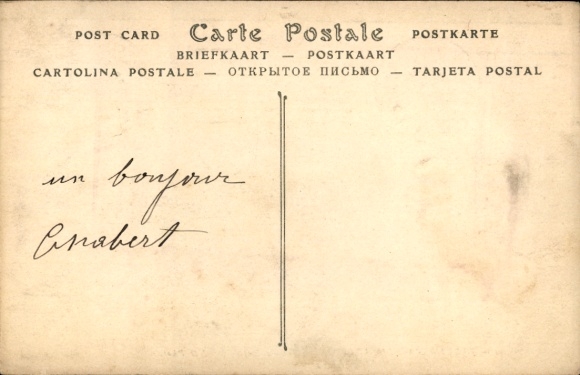 POST CARD Carte Postale POSTKARTE
BRIEFKAART — POSTKAART
CARTOLINA POSTALE — ОТКРЫТОЕ ПИСЬМО — TARJETA POSTAL
un bonjour